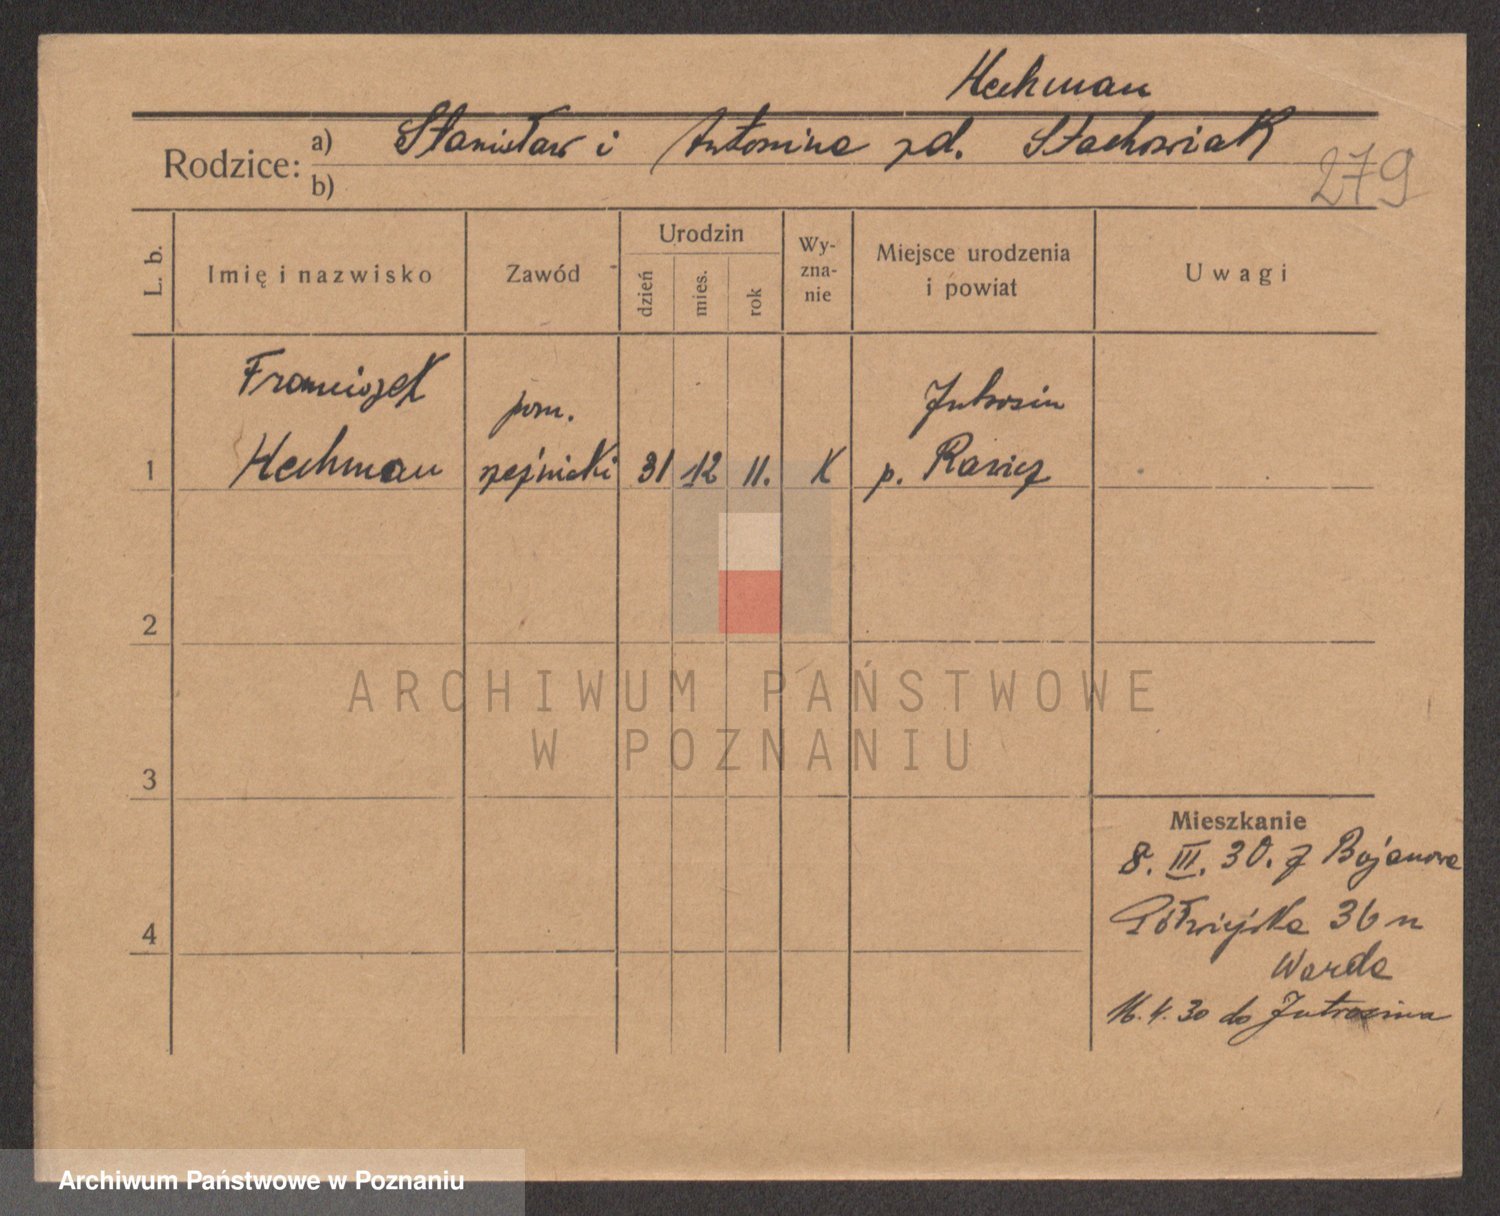 Hechman
Rodzice: a) Stanisław i Antonina zd. Stachowiak
b)
279
L. b. Imię i nazwisko Zawód Urodzin dzień mies. rok Wy-zna-nie Miejsce urodzenia i powiat Uwagi
Franciszek pom. Jutrosin
1 Hechman rzeźnicki 31 12 11. K p. Rawicz
2
ARCHIWUM PAŃSTWOWE
W POZNANIU
3
Mieszkanie
8. III. 30. z Bojanowa
4 Półwiejska 36 u
Warda
16. 4. 30 do Jutrosina
Archiwum Państwowe w Poznaniu